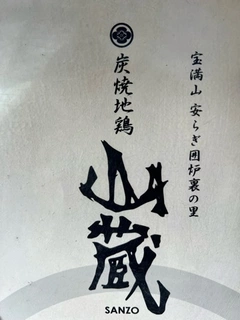 宝満山 安らぎ囲炉裏の里
炭焼地鶏
山蔵
SANZO